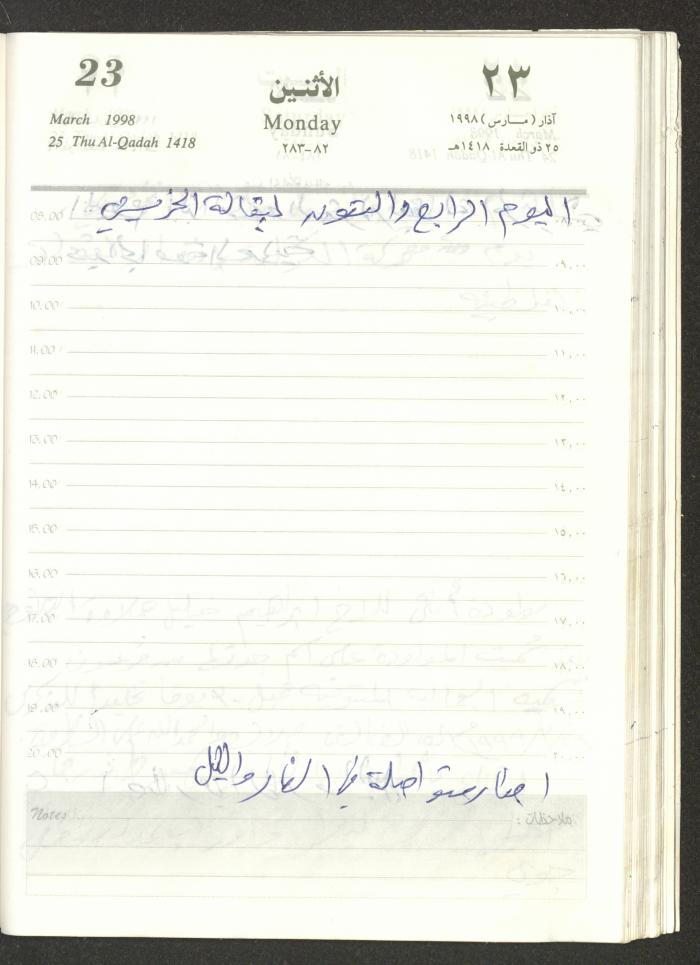 23 الأثنين ٢٣
March 1998 Monday آذار (مارس) ١٩٩٨
25 Thu Al-Qadah 1418 ٢٨٣-٨٢ ٢٥ ذو القعدة ١٤١٨هـ
اليوم الرابع والتسعون لبقالة
08.00
09.00 ٩,٠٠
10.00 ١٠,٠٠
11.00 ١١,٠٠
12.00 ١٢,٠٠
13.00 ١٣,٠٠
14.00 ١٤,٠٠
15.00 ١٥,٠٠
16.00 ١٦,٠٠
17.00 ١٧,٠٠
18.00 ١٨,٠٠
19.00 ١٩,٠٠
20.00 ٢٠,٠٠
امطار متواصلة في النهار والليل
Notes ملاحظات :